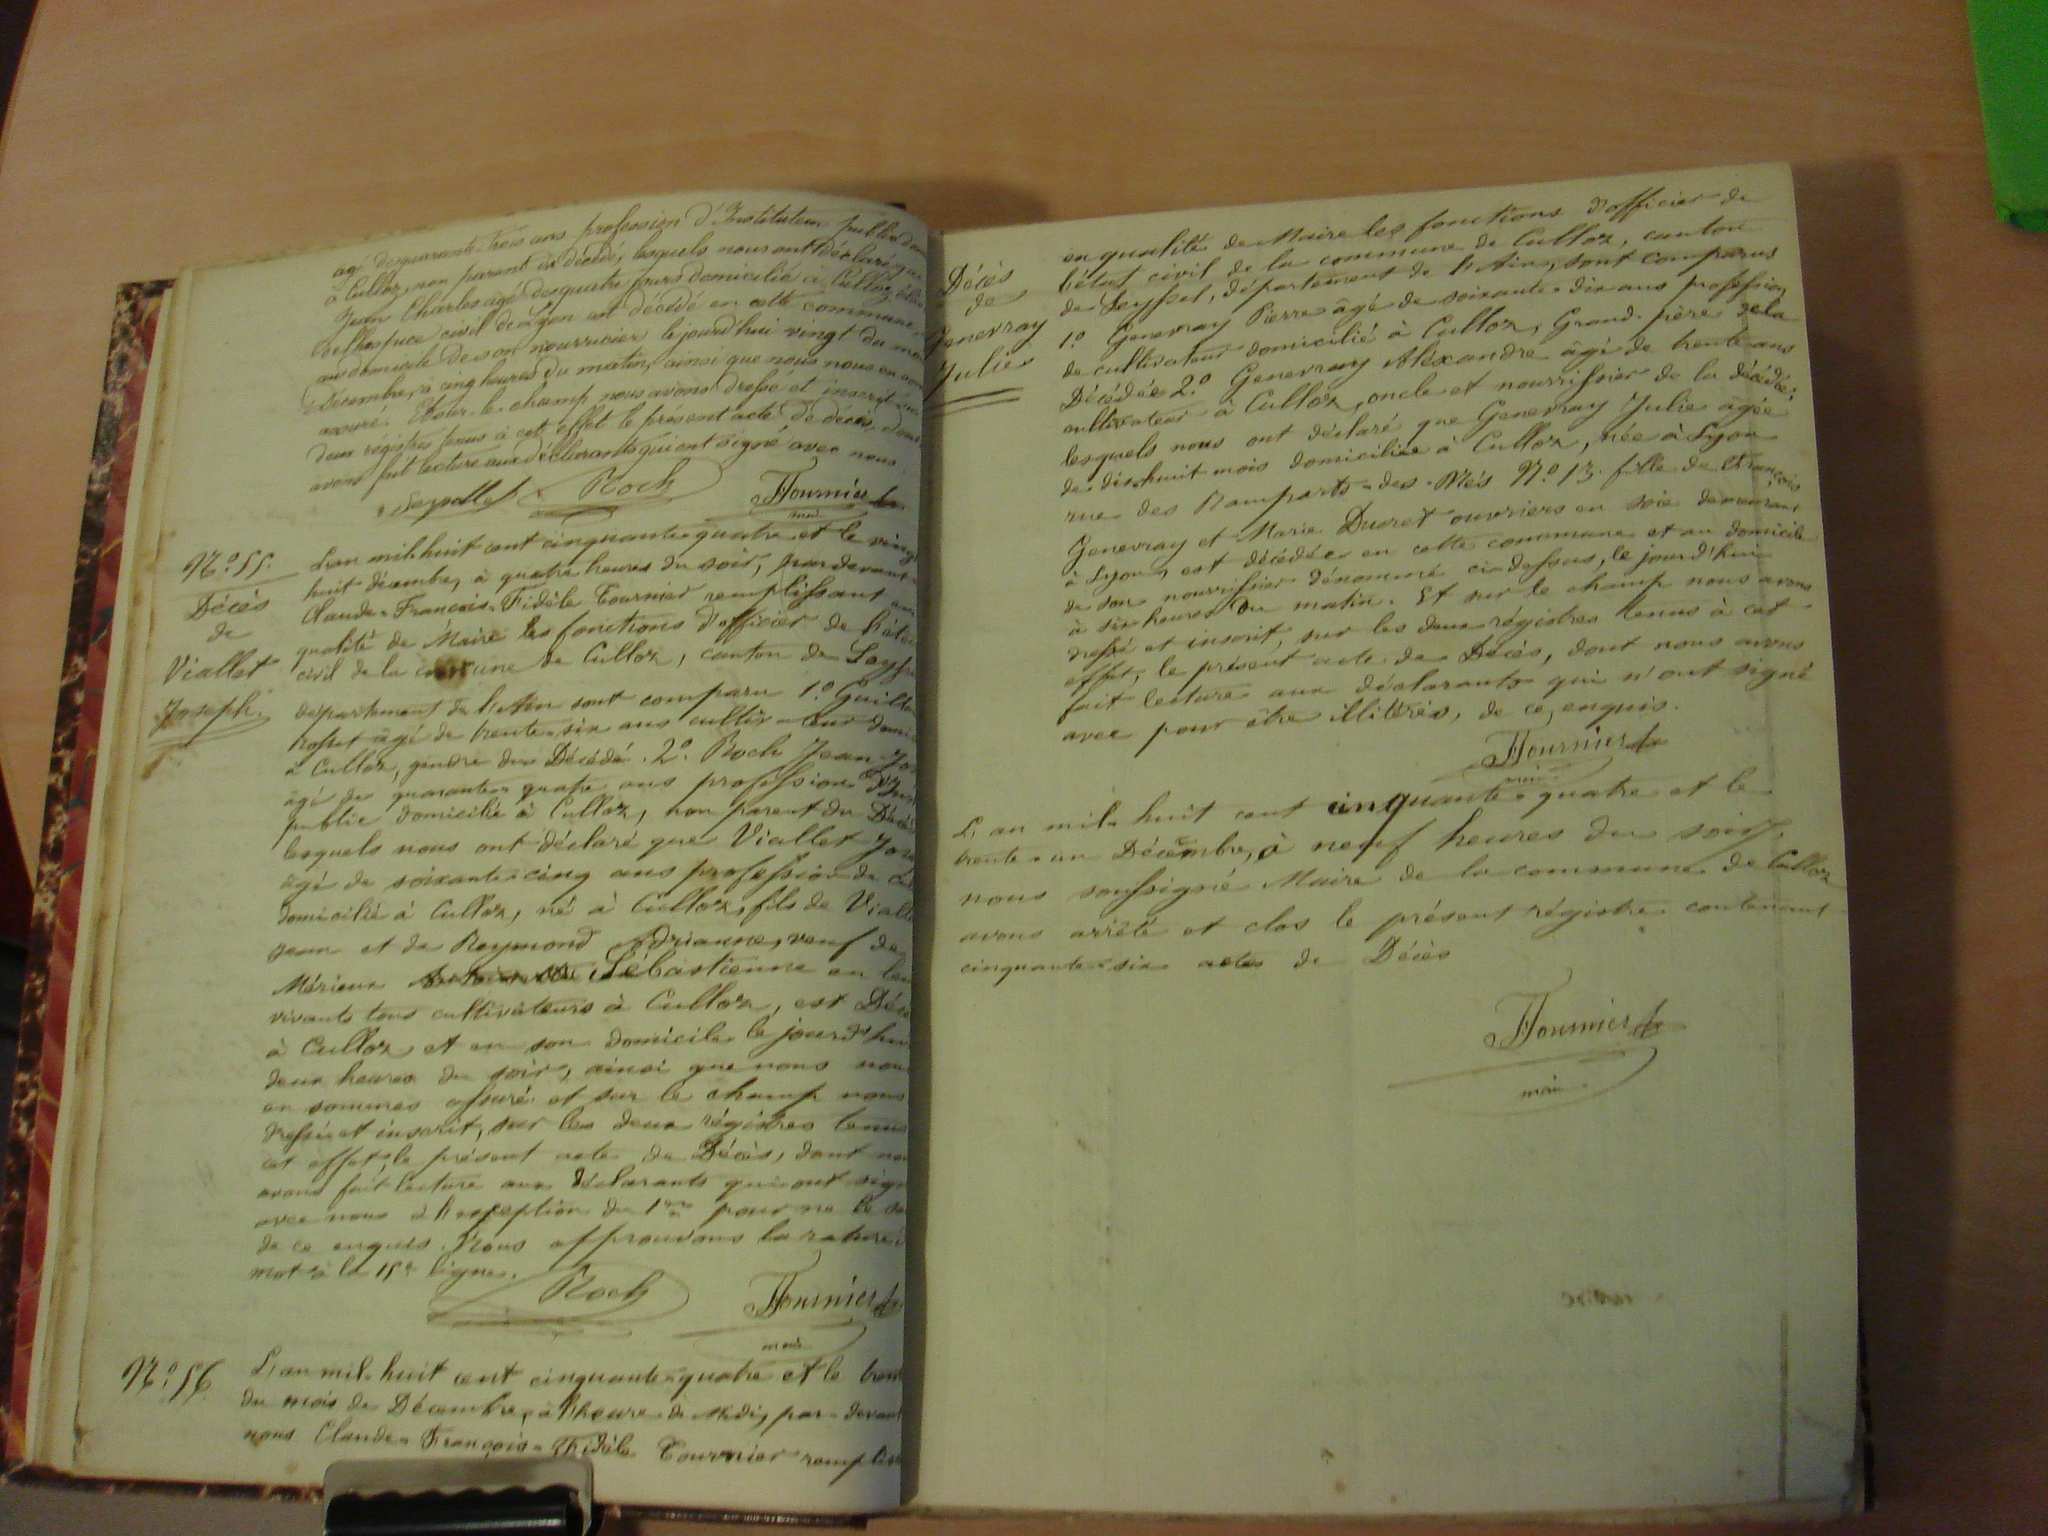 âgé de quarante-trois ans profession d'Instituteur public
à Culloz, non parent du décédé, lesquels nous ont déclaré
Jean Charles âgé de quatre jours domicilié à Culloz
de l'hospice civil de Lyon est décédé en cette commune
au domicile de son nourricier le jourd'hui vingt du
Décembre, à cinq heures du matin, ainsi que nous nous en
assuré. Et sur le champ nous avons dressé et inscrit
deux régistres tenus à cet effet le présent acte de décès, dont
avons fait lecture aux déclarants qui ont signé avec nous.
Roch Tournier
maire
N.º 55.
Décès
de
Viallet
Joseph.
L'an mil huit cent cinquante-quatre et le vingt
huit décembre, à quatre heures du soir, par devant
Claude-François-Fidèle Tournier remplissant en
qualité de Maire les fonctions d'officier de l'état
civil de la commune de Culloz, canton de Seyssel
département de l'Ain sont comparu 1.º
âgé de trente-six ans cultivateur
à Culloz, gendre du Décédé. 2.º Roch Jean
âgé de quarante-quatre ans profession
public domicilié à Culloz, non parent du
lesquels nous ont déclaré que Viallet
âgé de soixante-cinq ans profession de
domicilié à Culloz, né à Culloz, fils de
Jean et de Reymond Adrianne, veuf de
Mérieux Sébastienne en leur
vivants tous cultivateurs à Culloz, est
à Culloz et en son domicile le jourd'hui
deux heures du soir, ainsi que nous nous
en sommes assuré et sur le champ nous
dressé et inscrit, sur les deux régistres tenus
cet effet, le présent acte de Décès, dont
avons fait lecture aux déclarants qui ont
avec nous à l'exception du 1er pour ne le
de ce enquis. Nous approuvons la rature
mot à la 15e ligne.
Roch Tournier
maire
N.º 56
L'an mil-huit cent cinquante-quatre et le
du mois de Décembre, à l'heure de Midi, par-devant
nous Claude-François-Fidèle Tournier
Décès
de
Genevray
Julie
en qualité de Maire les fonctions d'officier de
l'état civil de la commune de Culloz, canton
de Seyssel, département de l'Ain, sont comparus
1.º Genevray Pierre âgé de soixante-dix ans profession
de cultivateur domicilié à Culloz, Grand-père de la
Décédée 2.º Genevray Aléxandre âgé de trente ans
cultivateur à Culloz, oncle et nourrissier de la décédée;
lesquels nous ont déclaré que Genevray Julie âgée
de dix-huit mois domiciliée à Culloz, née à Lyon
rue des Ramparts-des- N.º 13. fille de François
Genevray et Marie Ducret ouvriers en soie demeurant
à Lyon, est décédée en cette commune et au domicile
de son nourrissier dénommé ci-dessus, le jourd'hui
à six heures du matin. Et sur le champ nous avons
dressé et inscrit, sur les deux régistres tenus à cet
effet, le présent acte de Décès, dont nous avons
fait lecture aux déclarants qui n'ont signé
avec pour être illitérés, de ce, enquis.
Tournier
maire
L'an mil-huit cent cinquante-quatre et le
trente-un Décembre, à neuf heures du soir,
nous soussigné Maire de la commune de Culloz
avons arrêté et clos le présent régistre contenant
cinquante-six actes de Décès
Tournier
maire